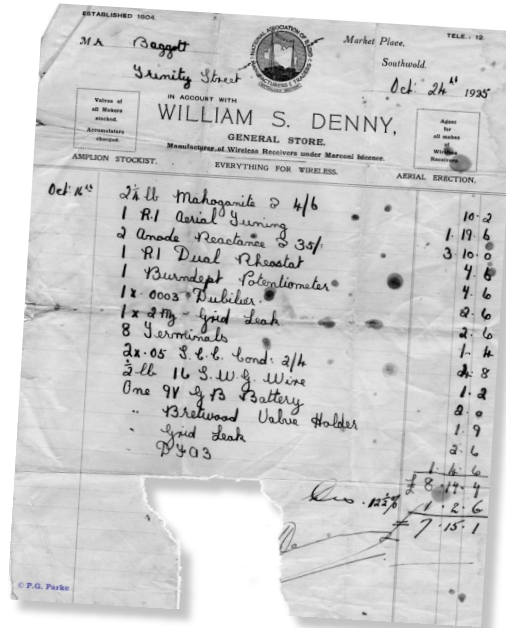 ESTABLISHED 1904.
TELE.: 12.
NATIONAL ASSOCIATION OF RADIO MANUFACTURERS & TRADERS
Mr Baggott
Market Place,
Trinity Street
Southwold.
Oct: 24th 1925
Valves of all Makers stocked.
Accumulators charged.
IN ACCOUNT WITH
WILLIAM S. DENNY,
GENERAL STORE.
Manufacturer of Wireless Receivers under Marconi Licence.
Agent for all makes of Wireless Receivers
AMPLION STOCKIST.
EVERYTHING FOR WIRELESS.
AERIAL ERECTION.
Oct: 16th 2¼ lb Mahoganite @ 4/6 10 . 2
1 R.I Aerial Tuning 1 . 19 . 6
2 Anode Reactance @ 35/. 3 . 10 . 0
1 R1 Dual Rheostat 4 . 6
1 Burndept Potentiometer 4 . 6
1 x .0003 Dubilier 2 . 6
1 x 2 - Grid Leak 2 . 6
8 Terminals 1 . 4
2x .05 Cond: 2/4 4 . 8
½ lb 16 S.W.G. Wire 1 . 2
One 9V G B Battery 2 . 0
" Bretwood Valve Holder 1 . 9
" Grid Leak 2 . 6
DFA3 1 . 4 . 6
£ 8 . 17 . 7
Dis. 12½% 1 . 2 . 6
£ 7 . 15 . 1
© P.G. Parke